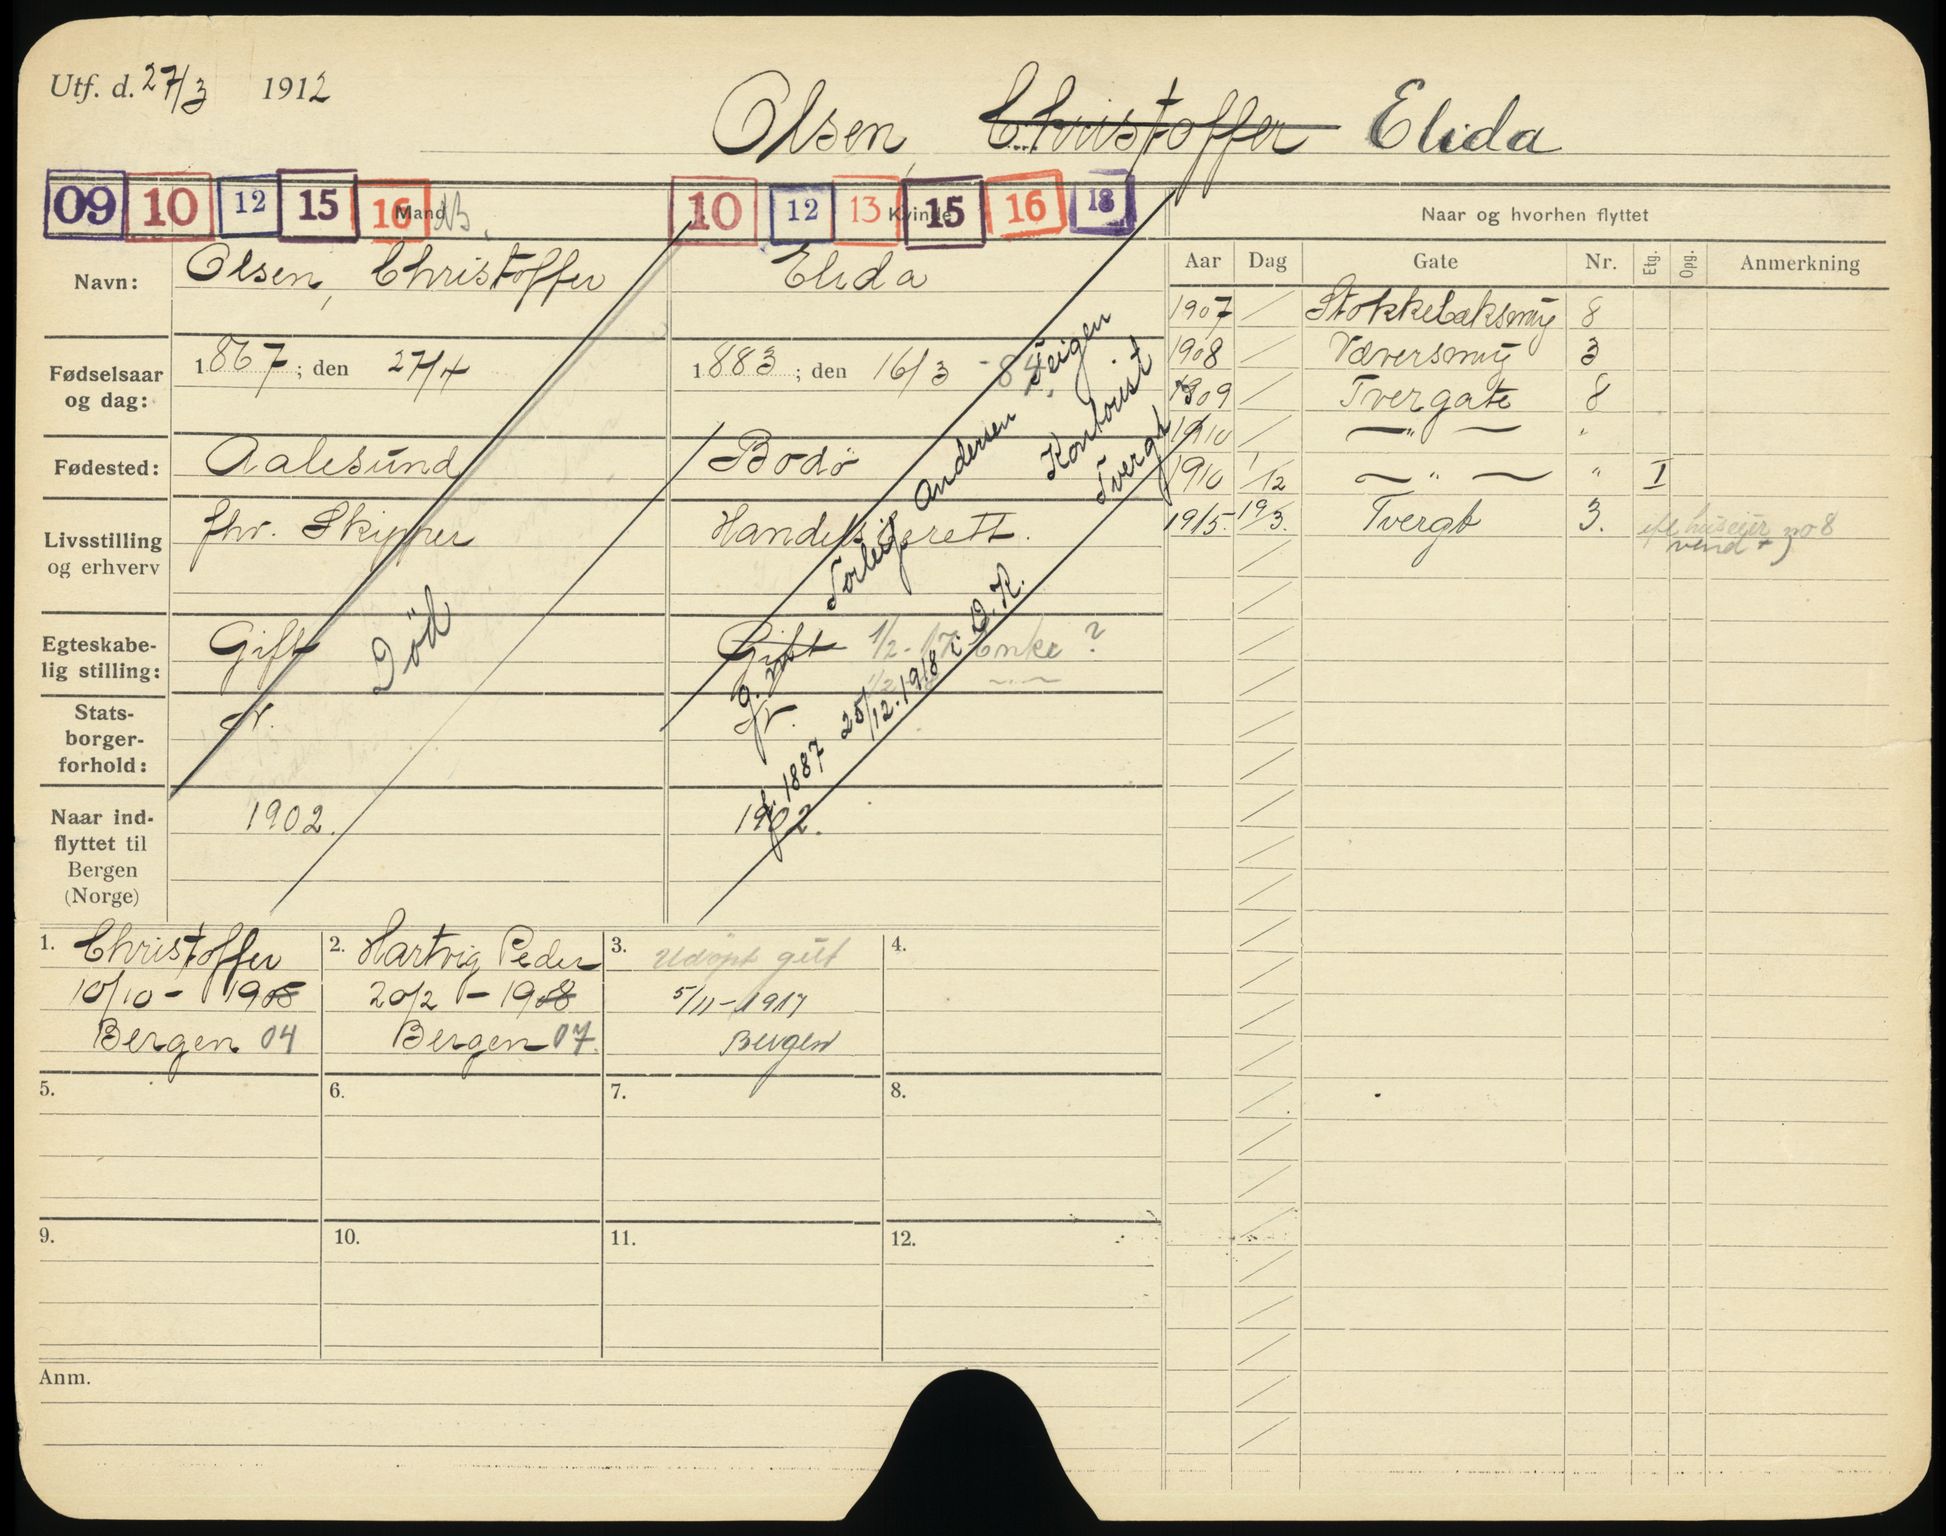 Utf. d. 27/3 1912
Olsen, Christoffer Elida
09 10 12 15 16 Mand
10 12 13 Kvinde 15 16 18
Naar og hvorhen flyttet
Navn: Olsen, Christoffer Elida
Fødselsaar og dag: 1867; den 27/4 1883; den 16/3 -84.
Fødested: Aalesund Bodö
Livsstilling og erhverv fhv. Skipper Handelsberett.
Egteskabelig stilling: Gift Gift 1/2-17 Enke?
Død
Statsborgerforhold: N. N.
Naar indflyttet til Bergen (Norge) 1902. 1902.
g. m. Torleif Andersen Teigen
f. 1887 25/12.1918 i: O.K.
Kontorist
Tvergt
Aar Dag Gate Nr. Etg. Opg. Anmerkning
1907 Stokkebæksmug 8
1908 Væversmug 3
1909 Tvergate 8
1910 — " — "
1910 1/12 — " — " I
1915. 19/3. Tvergt 3. huseier no 8
vend +)
1. Christoffer
10/10 - 1905
Bergen 04
2. Hartvig Peder
20/2 - 1908
Bergen 07.
3. Udøpt gut
5/11-1917
Bergen
4.
5.
6.
7.
8.
9.
10.
11.
12.
Anm.